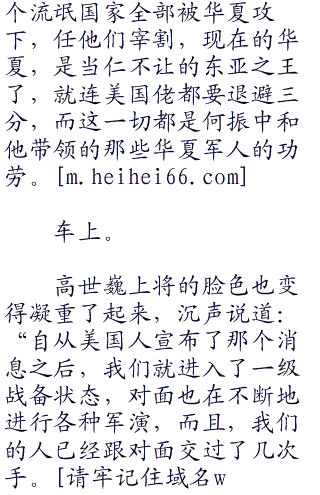 个流氓国家全部被华夏攻
下，任他们宰割，现在的华
夏，是当仁不让的东亚之王
了，就连美国佬都要退避三
分，而这一切都是何振中和
他带领的那些华夏军人的功
劳。[m.heihei66.com]
车上。
高世巍上将的脸色也变
得凝重了起来，沉声说道：
“自从美国人宣布了那个消
息之后，我们就进入了一级
战备状态，对面也在不断地
进行各种军演，而且，我们
的人已经跟对面交过了几次
手。[请牢记住域名w